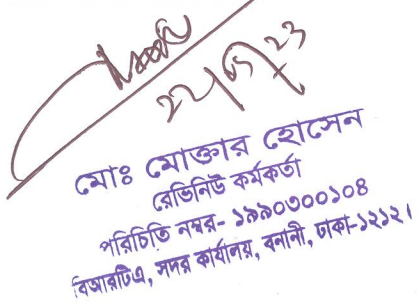 ২২/০৫/২৩
মোঃ মোক্তার হোসেন
রেভিনিউ কর্মকর্তা
পরিচিতি নম্বর- ১৯৯০৩০০১০৪
বিআরটিএ, সদর কার্যালয়, বনানী, ঢাকা-১২১২।